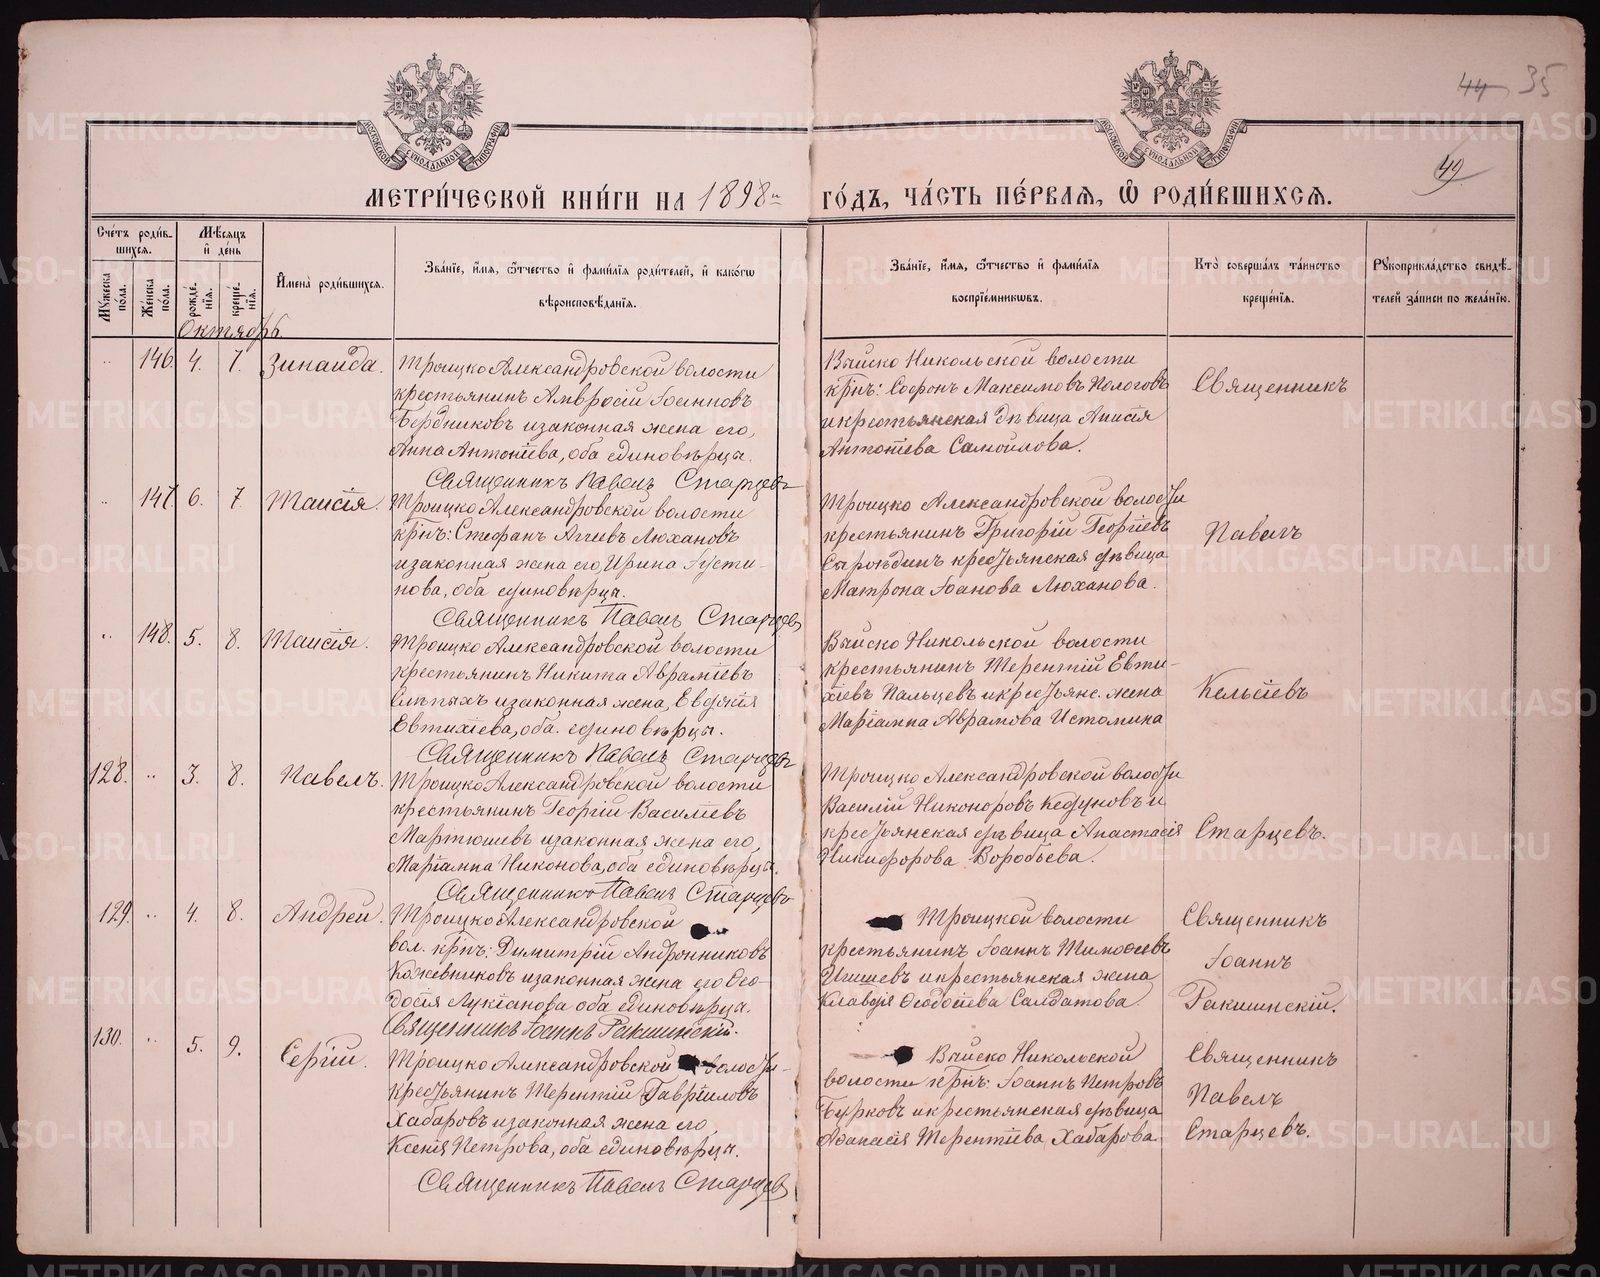 44 35
49
МОСКОВСКОЙ СУНОДАЛЬНОЙ ТИПОГРАФІИ
МОСКОВСКОЙ СУНОДАЛЬНОЙ ТИПОГРАФІИ
МЕТРИ́ЧЕСКОЙ КНИ́ГИ НА 1898й ГО́ДЪ, ЧА́СТЬ ПЕ́РВАЯ, Ѡ РОДИ́ВШИХСЯ.
Сче́тъ роди́в-
шихся.
Му́жеска по́ла.
Же́нска по́ла.
Мѣ́сяцъ
и де́нь
рожде́нія.
креще́нія.
Имена̀ роди́вшихся.
Зва́ніе, и́мя, ѿтчество и фами́лія роди́телей, и како́гѡ
вѣроисповѣ́данія.
Зва́ніе, и́мя, ѿтчество и фами́лія
воспріе́мникѡвъ.
Кто̀ соверша́лъ та́инство
креще́нія.
Рукоприкла́дство свидѣ́-
телей за́писи по жела́нію.
Октябрь
146. 4. 7. Зинаида.
Троицко Александровской волости
крестьянинъ Амвросій Іоанновъ
Бердниковъ и законная жена его,
Анна Антоніева, оба единовѣрцы.
Священникъ Павелъ Старцевъ
Вѣйско Никольской волости
крнъ: Софонъ Максимовъ Пологовъ
и крестьянская дѣвица Анисія
Антоніева Самойлова.
Священникъ
147. 6. 7. Таисія.
Троицко Александровской волости
крнъ: Стефанъ Аггеевъ Люхановъ
и законная жена его, Ирина Іусти-
нова, оба единовѣрцы.
Священникъ Павелъ Старцевъ
Троицко Александровской волости
крестьянинъ Григорій Георгіевъ
Сыроѣдинъ крестьянская дѣвица
Матрона Іоанова Люханова.
Павелъ
148. 5. 8. Таисія.
Троицко Александровской волости
крестьянинъ Никита Авраміевъ
Слѣпыхъ и законная жена, Евдокія
Евтихіева, оба единовѣрцы.
Священникъ Павелъ Старцевъ
Вѣйско Никольской волости
крестьянинъ Терентій Евти-
хіевъ Пальцевъ и крестьянс. жена
Маріанна Аврамова Истомина
Кельсіевъ
128. 3. 8. Павелъ.
Троицко Александровской волости
крестьянинъ Георгій Василіевъ
Мартюшевъ и законная жена его,
Маріанна Никонова, оба единовѣрцы.
Священникъ Павелъ Старцевъ
Троицко Александровской волости
Василій Никоноровъ Кедуновъ и
крестьянская дѣвица Анастасія
Никифорова Воробьева.
Старцевъ.
129. 4. 8. Андрей.
Троицко Александровской
вол. крнъ: Димитрій Андронниковъ
Кожевниковъ и законная жена его Ѳео-
досія Лукіанова оба единовѣрца.
Священникъ Іоаннъ Ракшинскій.
Троицкой волости
крестьянинъ Іоаннъ Тимоѳеевъ
и крестьянская жена
Клавдія Ѳеодосіева Салдатова
Священникъ
Іоаннъ
Ракшинскій.
130. 5. 9. Сергій.
Троицко Александровской волости
крестьянинъ Терентій Гавріиловъ
Хабаровъ и законная жена его,
Ксенія Петрова, оба единовѣрцы.
Священникъ Павелъ Старцевъ
Вѣйско Никольской
волости крнъ: Іоаннъ Петровъ
Бурковъ и крестьянская дѣвица
Аѳанасія Терентіева Хабарова.
Священникъ
Павелъ
Старцевъ.
METRIKI.GASO-URAL.RU